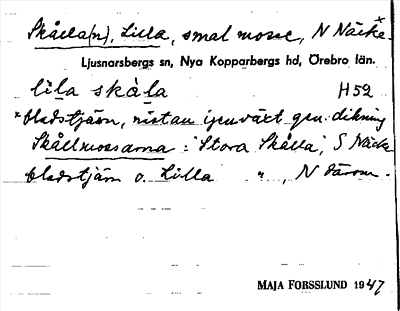 Skålla(n), Lilla, smal mosse, N Näcke x
Ljusnarsbergs sn, Nya Kopparbergs hd, Örebro län.
lila skåla H52
x bladstjärn, nästan igenväxt gm. dikning
Skållmossarna : Stora Skålla, S Näcke
bladstjärn o. Lilla " , N därom.
MAJA FORSSLUND 1947